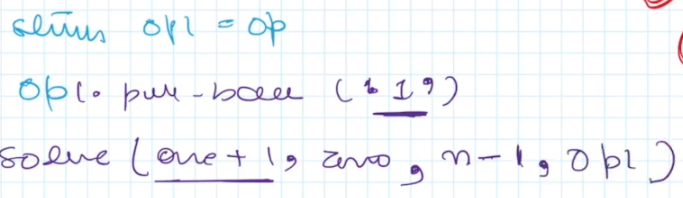 string op1 = op
op1. push-back ('1')
solve (one + 1, zero, n-1, op1)